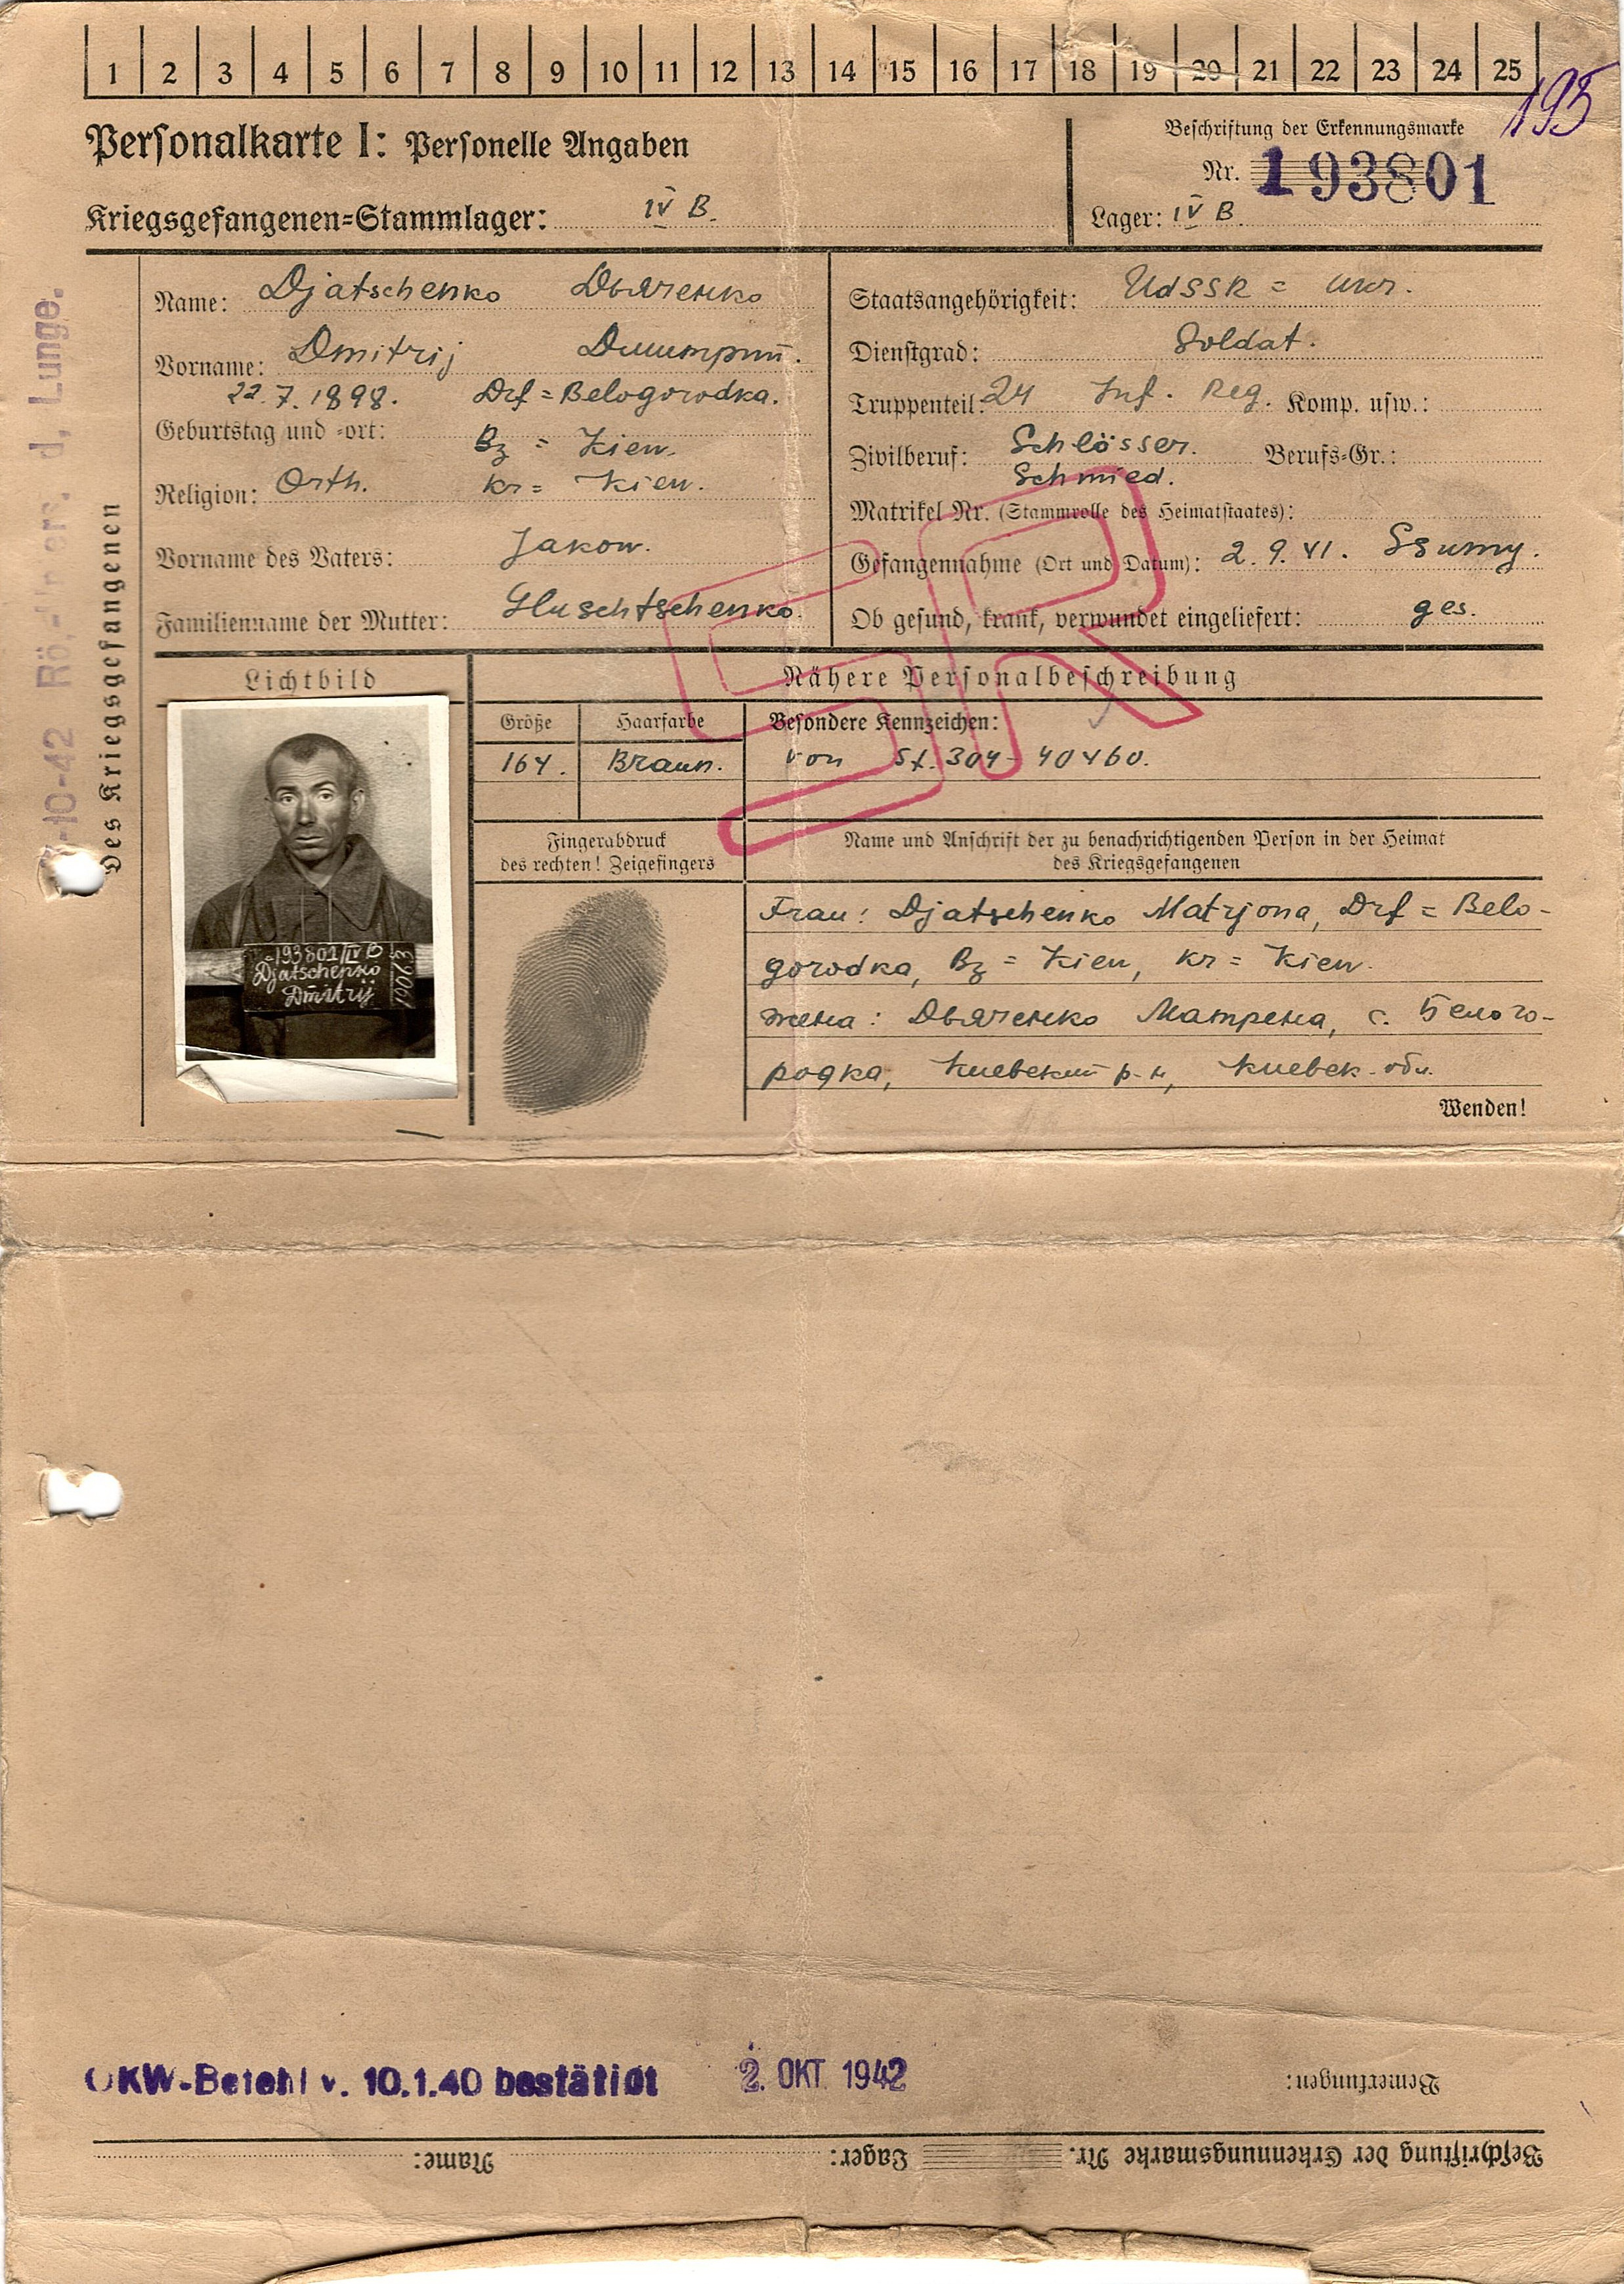 1 2 3 4 5 6 7 8 9 10 11 12 13 14 15 16 17 18 19 20 21 22 23 24 25
195
Personalkarte I: Personelle Angaben
Beschriftung der Erkennungsmarke
Nr. 193801
Kriegsgefangenen=Stammlager: IV B.
Lager: IV B.
des Kriegsgefangenen
-10-42 Lunge.
Name: Djatschenko Дьяченко
Vorname: Dmitrij Дмитрий.
22.7.1898. Drf = Belogorodka.
Geburtstag und =ort: Bz = Kiew.
Religion: Orth. Kr = Kiew.
Vorname des Vaters: Jakow.
Familienname der Mutter: Gluschtschenko.
Staatsangehörigkeit: UdSSR = Ukr.
Dienstgrad: Soldat.
Truppenteil: 24 Inf. Reg. Komp. usw.:
Zivilberuf: Schlösser. Berufs=Gr.:
Schmied.
Matrikel Nr. (Stammrolle des Heimatstaates):
Gefangennahme (Ort und Datum): 2.9.41. Ssumy.
Ob gesund, krank, verwundet eingeliefert: ges.
SR
Lichtbild
193801/IV B
Djatschenko
Dmitrij
19063
Nähere Personalbeschreibung
Größe Haarfarbe Besondere Kennzeichen:
164. Braun. von St. 304 - 40460.
Fingerabdruck
des rechten! Zeigefingers
Name und Anschrift der zu benachrichtigenden Person in der Heimat
des Kriegsgefangenen
Frau: Djatschenko Matrjona, Drf = Belo-
gorodka, Bz = Kiew, Kr = Kiew.
жена: Дьяченко Матрена, с. Белого-
родка, Киевский р-н, Киевск. обл.
Wenden!
OKW-Befehl v. 10.1.40 bestätigt 2. OKT. 1942
Bemerkungen:
Beschriftung der Erkennungsmarke Nr. Lager: Name: